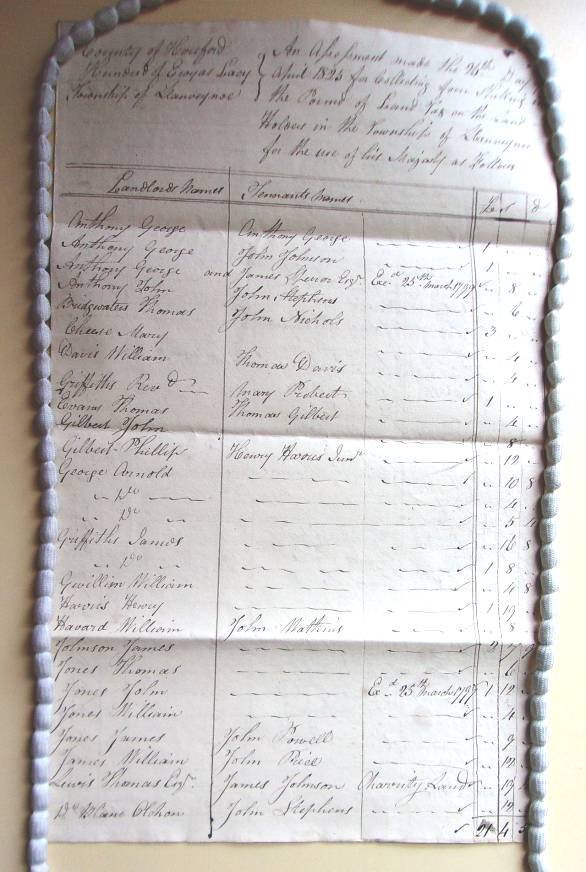 County of Hereford
Hundred of Ewyas Lacy
Township of Llanveynoe
An Assessment made the 26th Day
April 1825 for Collecting four Shilling
the Pound of Land Tax on the Land
Holders in the Township of Llanveynoe
for the use of his Majesty as Follows
Landlords Names Tennants Names £ s d
Anthony George Anthony George 1
Anthony George John Johnson 1
Anthony George and James Esqr. Exd. 25th March 1799 8
Anthony John John Stephens 6
Bridgwater Thomas John Nichols 3
Cheese Mary 4
Davis William Thomas Davis 4
Griffiths Revd. Mary Probert 1
Evans Thomas Thomas Gilbert 4
Gilbert John 8
Gilbert Phillip Henry Harris Junr. 12
George Arnold 10 8
Do 4
Do 5 4
Griffiths James 16 8
Do 1 8
Gwillim William 4 8
Harris Henry 1 19
Havard William John Watkins 8
Johnson James
Jones Thomas 6
Jones John Exd. 25th March 1799 1 12
Jones William 4
Jones James John Powell 9
James William John Price 12
Lewis Thomas Esqr. James Johnson Charrity Land 19
Do Blane Olchon John Stephens 12
21 4 5